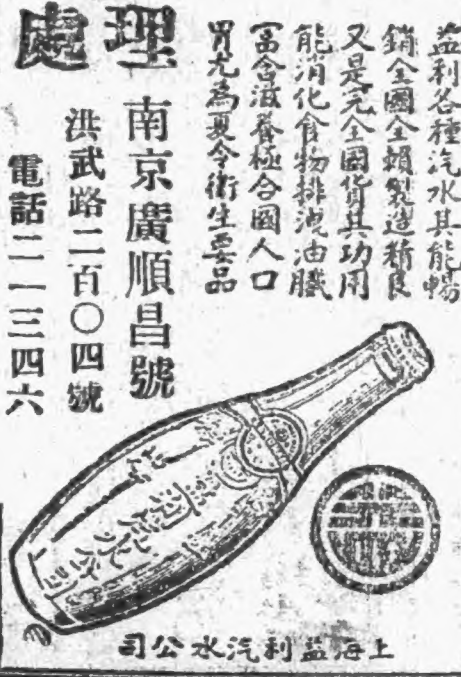 益利各種汽水其能暢
銷全國全賴製造精良
又是完全國貨其功用
能消化食物排洩油膩
富含滋養極合國人口
胃尤為夏令衛生要品
理處
南京廣順昌號
洪武路二百〇四號
電話二一三四六
上海益利汽水公司